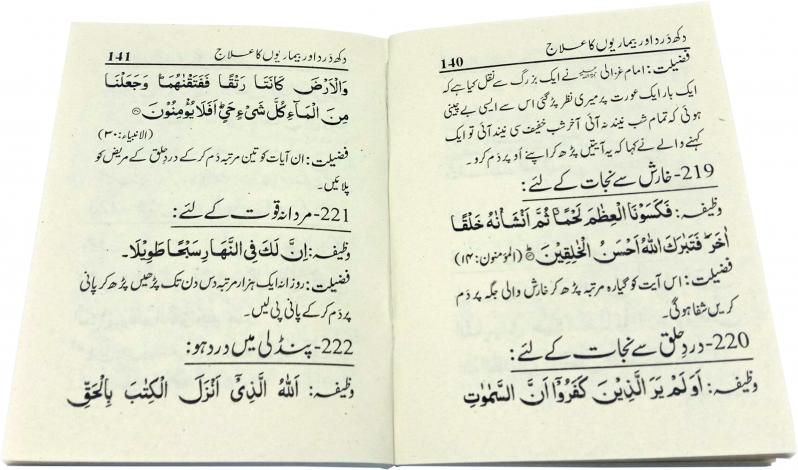 140 دکھ درد اور بیماریوں کا علاج
فضیلت: امام غزالی نے ایک بزرگ سے نقل کیا ہے کہ
ایک بار ایک عورت پر میری نظر پڑ گئی اس سے ایسی بے چینی
ہوئی کہ تمام شب نیند نہ آئی آخر شب خفیف سی نیند آئی تو ایک
کہنے والے نے کہا کہ یہ آیتیں پڑھ کر اپنے اُوپر دَم کرو۔
219-خارش سے نجات کے لئے:
وظیفہ: فَكَسَوْنَا الْعِظٰمَ لَحْمًا ثُمَّ اَنْشَاْنٰهُ خَلْقًا
اٰخَرَ فَتَبٰرَكَ اللهُ اَحْسَنُ الْخٰلِقِيْنَ (المؤمنون:۱۴)
فضیلت: اس آیت کو گیارہ مرتبہ پڑھ کر خارش والی جگہ پر دَم
کریں شفا ہوگی۔
220-دردِ حلق سے نجات کے لئے:
وظیفہ: اَوَلَمْ يَرَ الَّذِيْنَ كَفَرُوْٓا اَنَّ السَّمٰوٰتِ
141 دکھ درد اور بیماریوں کا علاج
وَالْاَرْضَ كَانَتَا رَتْقًا فَفَتَقْنٰهُمَا وَجَعَلْنَا
مِنَ الْمَآءِ كُلَّ شَیْءٍ حَیٍّ اَفَلَا يُؤْمِنُوْنَ
(الانبیاء:۳۰)
فضیلت: ان آیات کو تین مرتبہ دَم کر کے دردِ حلق کے مریض کو
پلائیں۔
221-مردانہ قوت کے لئے:
وظیفہ: اِنَّ لَكَ فِی النَّهَارِ سَبْحًا طَوِيْلًا۔
فضیلت: روزانہ ایک ہزار مرتبہ دس دن تک پڑھیں پڑھ کر پانی
پر دَم کر کے پانی پی لیں۔
222-پنڈلی میں درد ہو:
وظیفہ: اَللهُ الَّذِیْٓ اَنْزَلَ الْكِتٰبَ بِالْحَقِّ